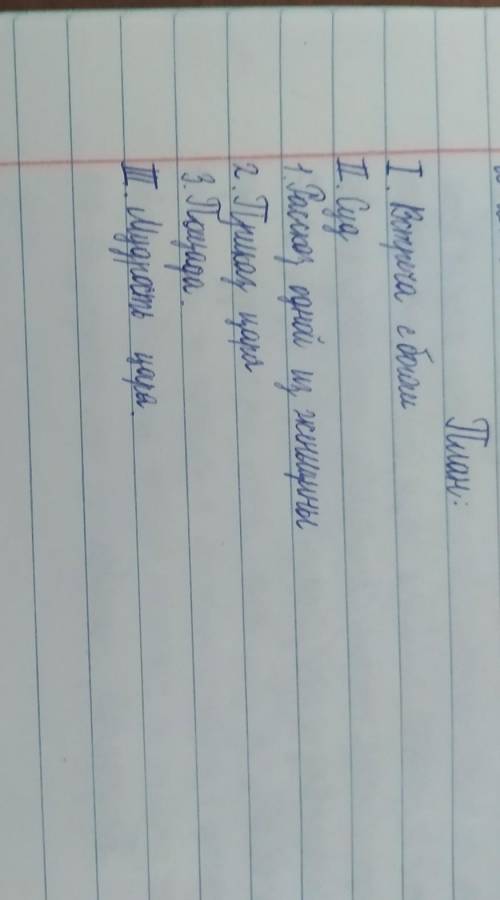 План:
I. Встреча с богом
II. Суд
1. Рассказ одной из женщины
2. Приказ царя
3. Правда.
III. Мудрость царя.